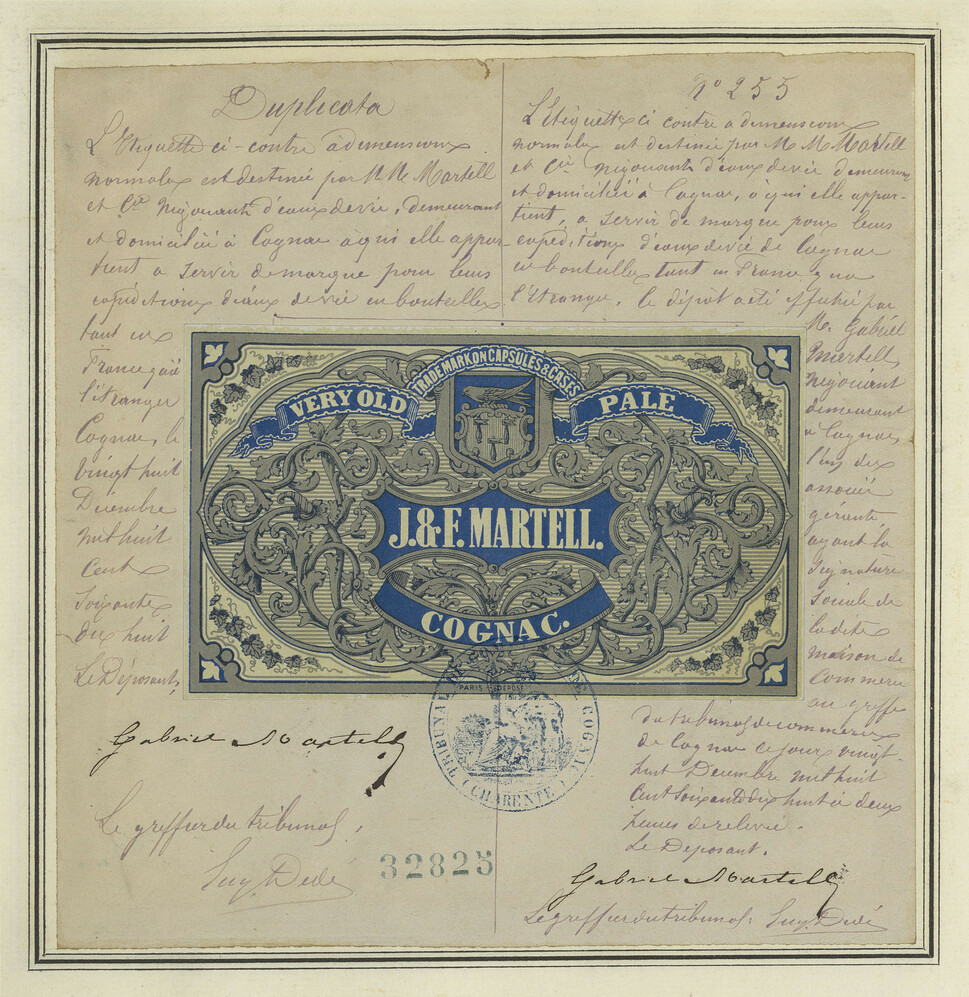 Duplicata
L'Etiquette ci-contre à dimensions
normales est destinée par M M Martell
et Cie Négociants d'eaux de vie, demeurant
et domiciliés à Cognac à qui elle appar-
tient a servir de marque pour leurs
expéditions d'eaux de vie en bouteilles
tant en
France qu'à
l'étranger
Cognac, le
vingt huit
Décembre
mil huit
cent
soixante
dix huit
Le Déposant,
Gabriel Martell
Le greffier du tribunal,
32825
No 255
L'Etiquette ci contre a dimensions
normales est destinée par M M Martell
et Cie Négociants d'eaux de vie demeurant
et domiciliés à Cognac, à qui elle appar-
tient, a servir de marque pour leurs
expéditions d'eaux de vie de Cognac
en bouteilles tant en France que
l'étranger, le dépôt a été effectué par
Mr Gabriel
Martell,
négociant
demeurant
à Cognac,
l'un des
associés
gérants
ayant la
signature
sociale de
la dite
maison de
commerce
au greffe
du tribunal de commerce
de Cognac ce jour vingt-
huit Décembre mil huit
cent soixante dix huit à deux
heures de relevée.
Le Déposant.
Gabriel Martell
Le greffier du tribunal:
TRADE MARK ON CAPSULES & CASES
VERY OLD
PALE
J. & F. MARTELL.
COGNAC.
PARIS DÉPOSÉ
TRIBUNAL DE COGNAC
(CHARENTE)